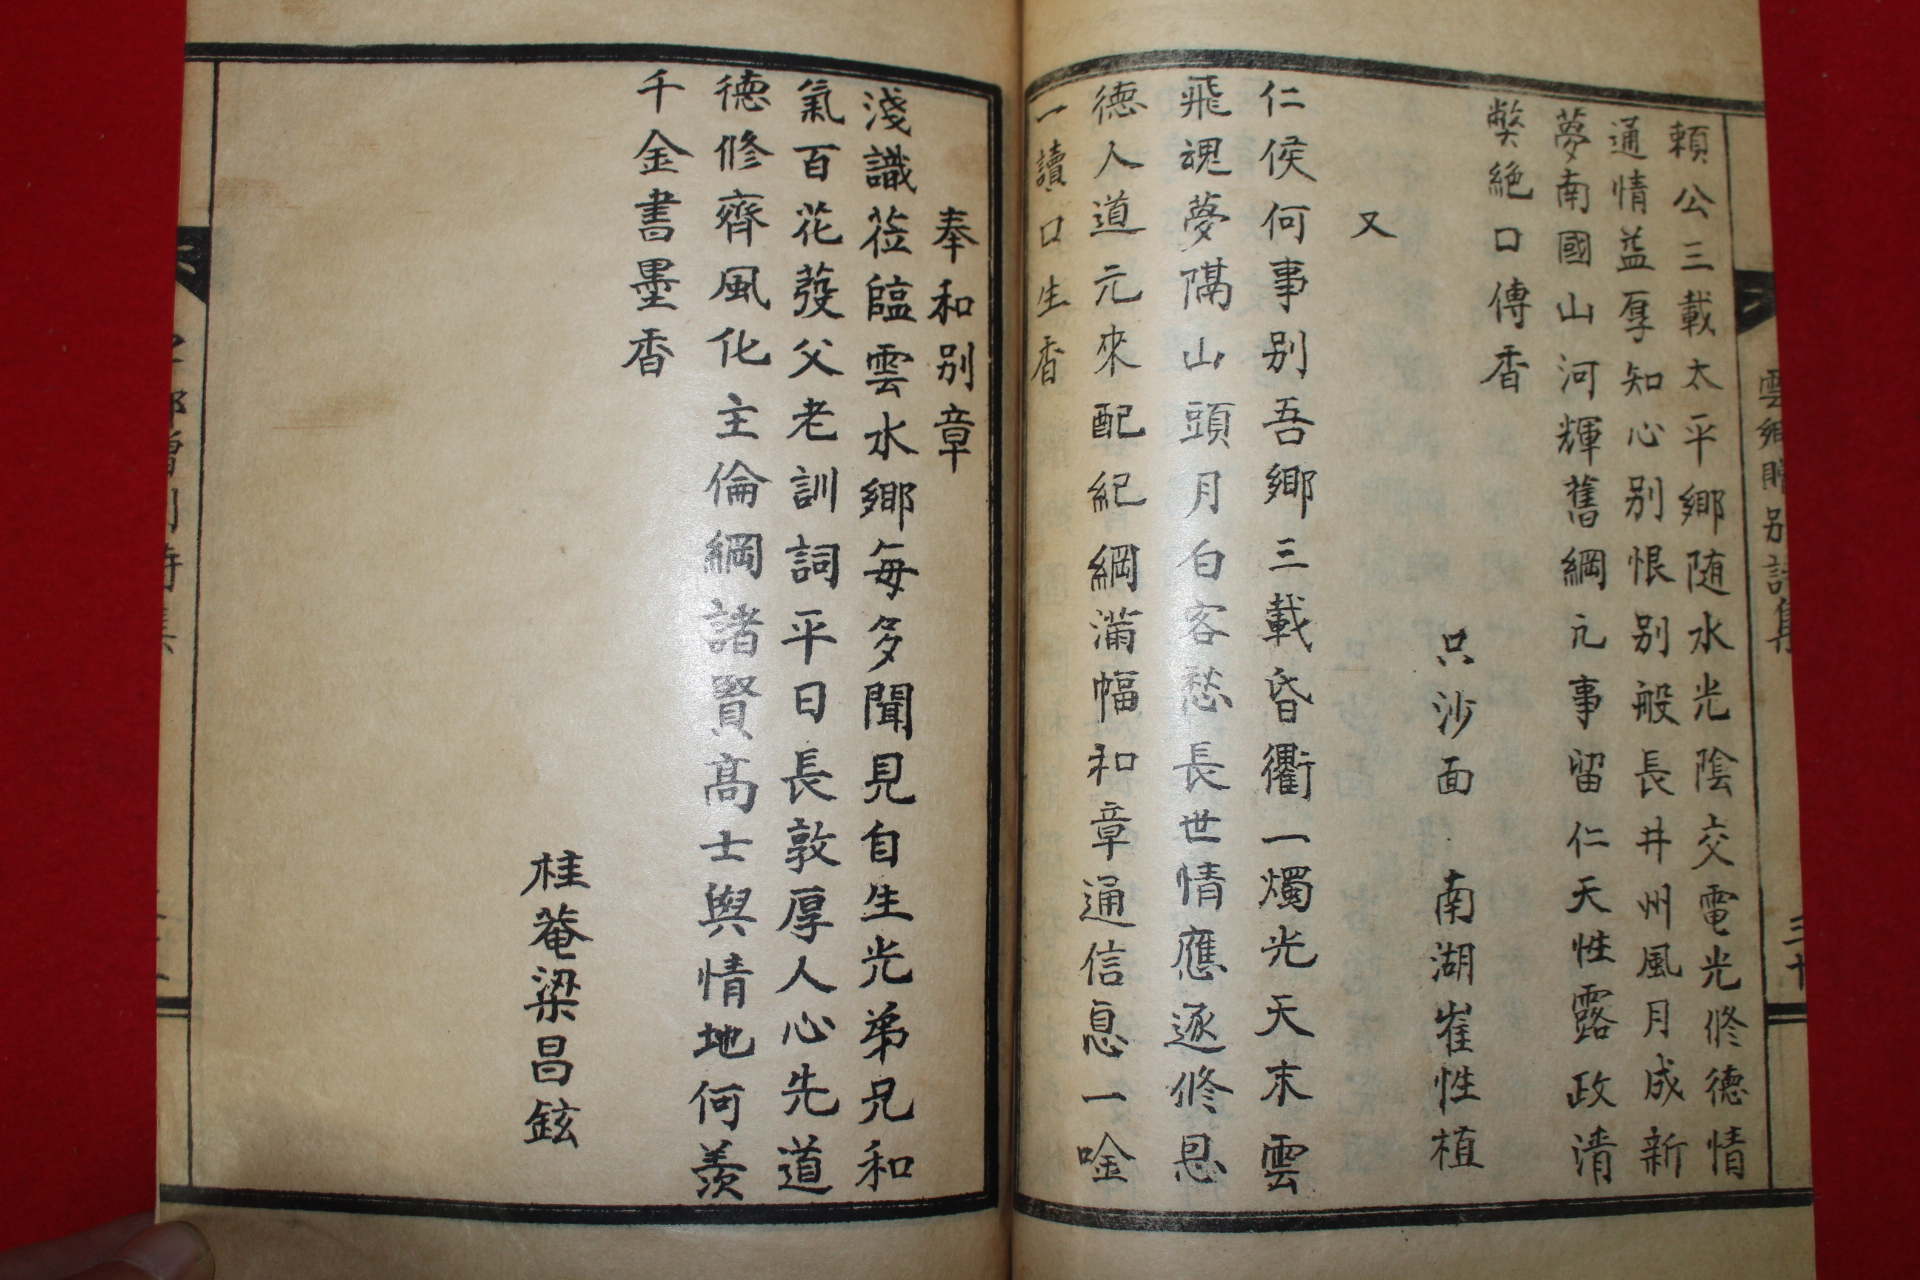 雲鄉贈別詩集
三十
賴公三載太平鄉随水光陰交電光修德情
通情益厚知心别恨别般長井州風月成新
夢南國山河輝舊綱元事留仁天性露政清
弊絶口傳香
只沙面 南湖崔性植
又
仁侯何事别吾鄉三載昏衢一燭光天末雲
飛魂夢隔山頭月白客愁長世情應逐修恩
德人道元來配紀綱滿幅和章通信息一唫
一讀口生香
奉和别章
淺識莅臨雲水鄉每多聞見自生光弟兄和
氣百花發父老訓詞平日長敦厚人心先道
德修齊風化主倫綱諸賢高士與情地何羨
千金書墨香
桂菴梁昌鉉